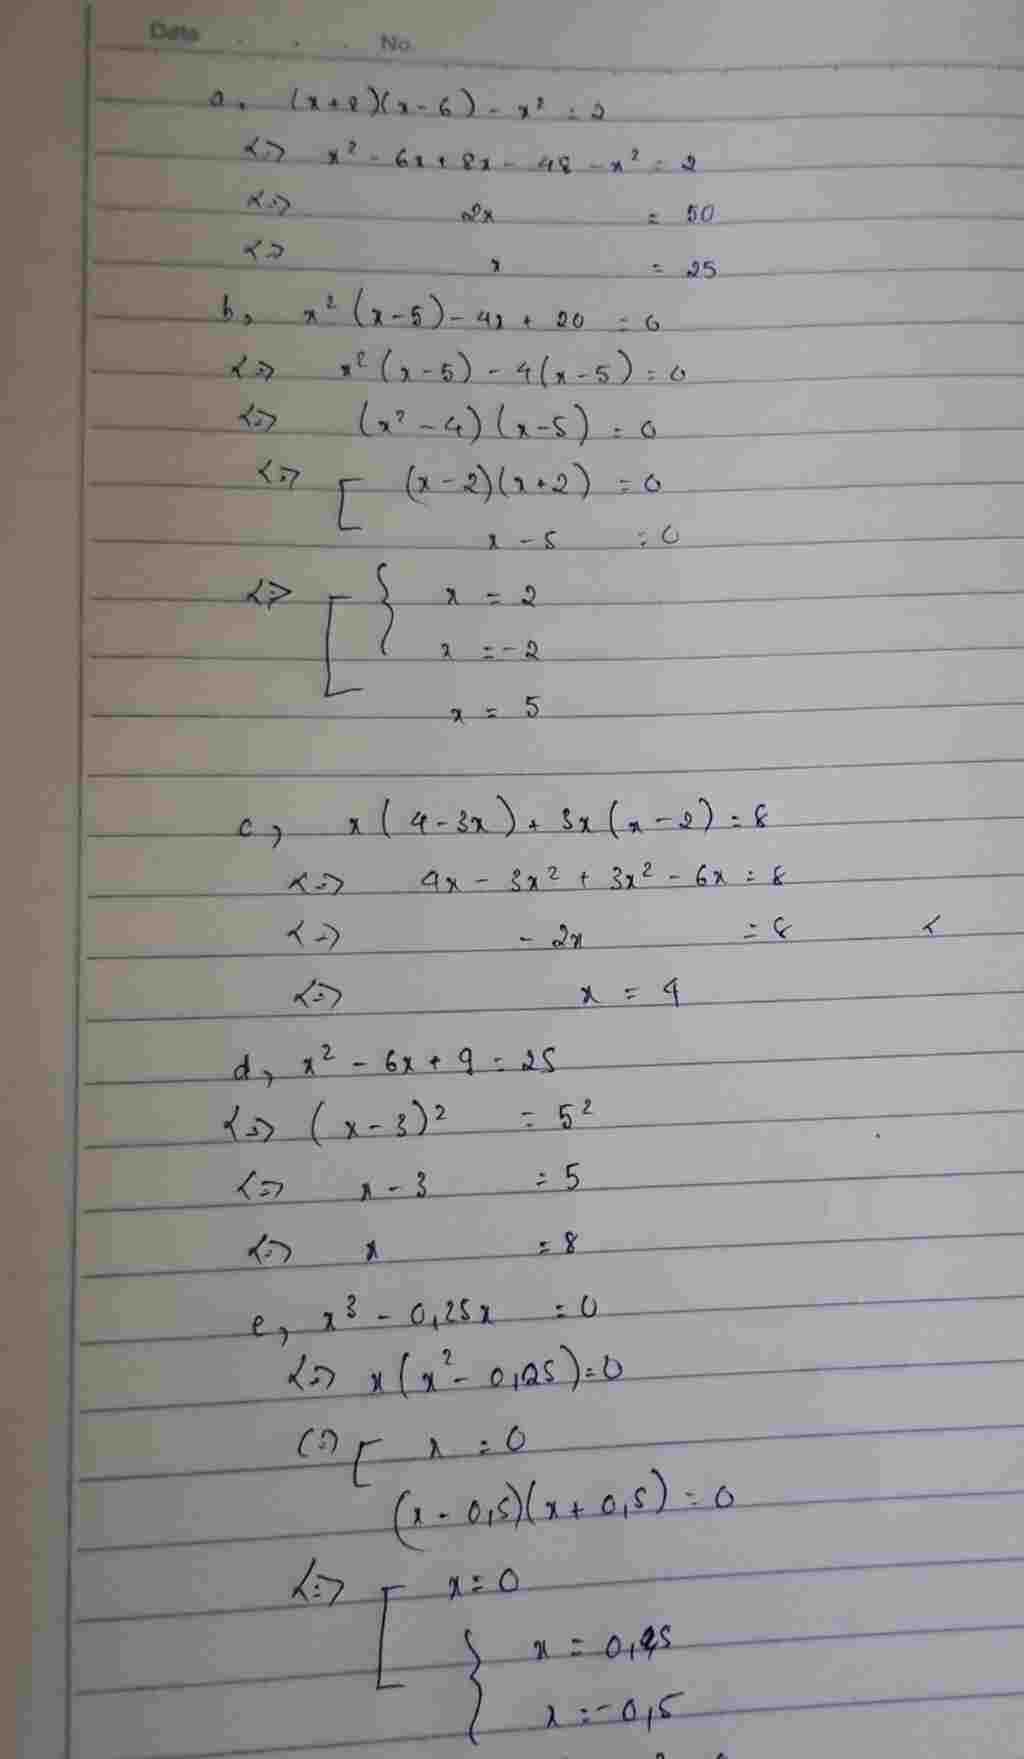 Date No.
a, (x+8)(x-6) - x² = 2
<=> x² - 6x + 8x - 48 - x² = 2
<=> 2x = 50
<=> x = 25
b, x² (x-5) - 4x + 20 = 0
<=> x² (x-5) - 4(x-5) = 0
<=> (x² - 4)(x-5) = 0
<=> [ (x-2)(x+2) = 0
x - 5 = 0
<=> [ { x = 2
x = -2
x = 5
c, x(4-3x) + 3x(x-2) = 8
<=> 4x - 3x² + 3x² - 6x = 8
<=> - 2x = 8 <
<=> x = 4
d, x² - 6x + 9 = 25
<=> (x-3)² = 5²
<=> x - 3 = 5
<=> x = 8
e, x³ - 0,25x = 0
<=> x(x² - 0,25) = 0
(=) [ x = 0
(x - 0,5)(x + 0,5) = 0
<=> [ x = 0
{ x = 0,5
x = -0,5